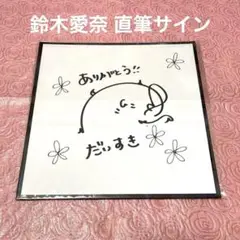 鈴木愛奈 直筆サイン
ありがとう!!
だいすき